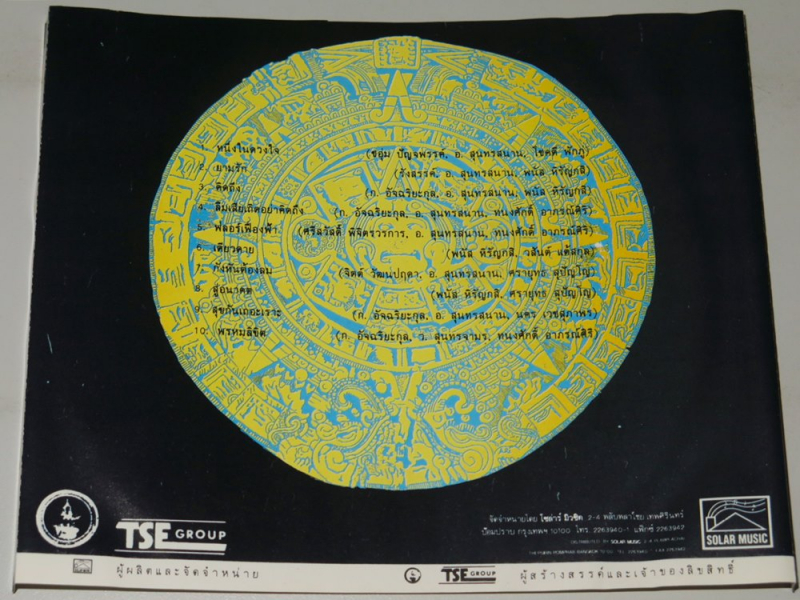 1. หนึ่งในดวงใจ (ชอุ่ม ปัญจพรรค์, อ. สุนทรสนาน, โชคดี พักภู่)
2. ยามรัก (รังสรรค์, อ. สุนทรสนาน, พนัส หิรัญกสิ)
3. คิดถึง (ก. อัจฉริยะกุล, อ. สุนทรสนาน, พนัส หิรัญกสิ)
4. ลืมเสียเถิดอย่าคิดถึง (ก. อัจฉริยะกุล, อ. สุนทรสนาน, ทนงศักดิ์ อาภรณ์ศิริ)
5. ฟลอร์เฟื่องฟ้า (ศรีสวัสดิ์ พิจิตรวรการ, อ. สุนทรสนาน, ทนงศักดิ์ อาภรณ์ศิริ)
6. เดียวดาย (พนัส หิรัญกสิ, วสันต์ แต้สกุล)
7. กังหันต้องลม (จิตต์ วัฒนปฤดา, อ. สุนทรสนาน, ศรายุทธ สุปัญโญ)
8. สู่อนาคต (พนัส หิรัญกสิ, ศรายุทธ สุปัญโญ)
9. สุขกันเถอะเราะ (ก. อัจฉริยะกุล, อ. สุนทรสนาน, นคร เวชสุภาพร)
10. พรหมลิขิต (ก. อัจฉริยะกุล, ว. สุนทรจามร, ทนงศักดิ์ อาภรณ์ศิริ)
TSE GROUP
จัดจำหน่ายโดย โซล่าร์ มิวซิค 2-4 พลับพลาไชย เทพศิรินทร์
ป้อมปราบ กรุงเทพฯ 10100 โทร. 2263940-1 แฟ็กซ์ 2263942
DISTRIBUTED BY SOLAR MUSIC 2-4
SOLAR MUSIC
ผู้ผลิตและจัดจำหน่าย
TSE GROUP ผู้สร้างสรรค์และเจ้าของลิขสิทธิ์